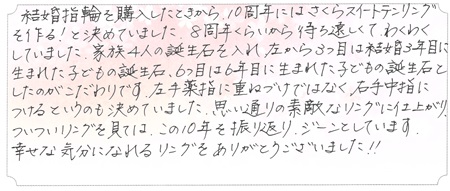 結婚指輪を購入したときから、10周年にはさくらスイートテンリング
を作る！と決めていました。8周年くらいから待ち遠しくてわくわく
していました。家族4人の誕生石を入れ、左から3つ目は結婚3年目に
生まれた子どもの誕生石、6つ目は6年目に生まれた子どもの誕生石と
したのがこだわりです。左手薬指に重ねづけではなく、右手中指に
つけるというのも決めていました。思い通りの素敵なリングに仕上がり、
ついついリングを見ては、この10年を振り返り、ジーンとしています。
幸せな気分になれるリングをありがとうございました!!